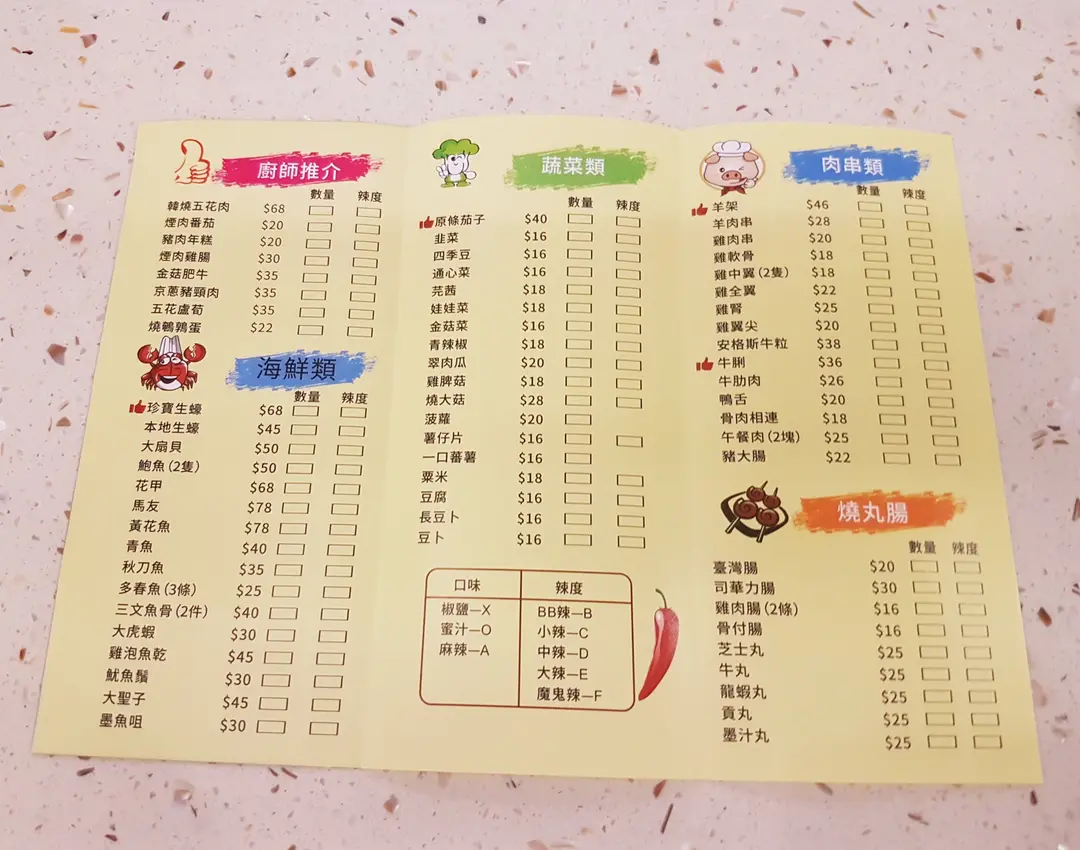 廚師推介
數量 辣度
韓燒五花肉 $68
煙肉番茄 $20
豬肉年糕 $20
煙肉雞腸 $30
金菇肥牛 $35
京蔥豬頸肉 $35
五花蘆荀 $35
燒鵪鶉蛋 $22
海鮮類
數量 辣度
珍寶生蠔 $68
本地生蠔 $45
大扇貝 $50
鮑魚(2隻) $50
花甲 $68
馬友 $78
黃花魚 $78
青魚 $40
秋刀魚 $35
多春魚(3條) $25
三文魚骨(2件) $40
大虎蝦 $30
雞泡魚乾 $45
魷魚鬚 $30
大聖子 $45
墨魚咀 $30
蔬菜類
數量 辣度
原條茄子 $40
韭菜 $16
四季豆 $16
通心菜 $16
芫茜 $18
娃娃菜 $18
金菇菜 $16
青辣椒 $18
翠肉瓜 $20
雞脾菇 $18
燒大菇 $28
菠蘿 $20
薯仔片 $16
一口蕃薯 $16
粟米 $18
豆腐 $16
長豆卜 $16
豆卜 $16
口味 辣度
椒鹽—X BB辣—B
蜜汁—O 小辣—C
麻辣—A 中辣—D
大辣—E
魔鬼辣—F
肉串類
數量 辣度
羊架 $46
羊肉串 $28
雞肉串 $20
雞軟骨 $18
雞中翼(2隻) $18
雞全翼 $22
雞腎 $25
雞翼尖 $20
安格斯牛粒 $38
牛脷 $36
牛肋肉 $26
鴨舌 $20
骨肉相連 $18
午餐肉(2塊) $25
豬大腸 $22
燒丸腸
數量 辣度
臺灣腸 $20
司華力腸 $30
雞肉腸(2條) $16
骨付腸 $16
芝士丸 $25
牛丸 $25
龍蝦丸 $25
貢丸 $25
墨汁丸 $25